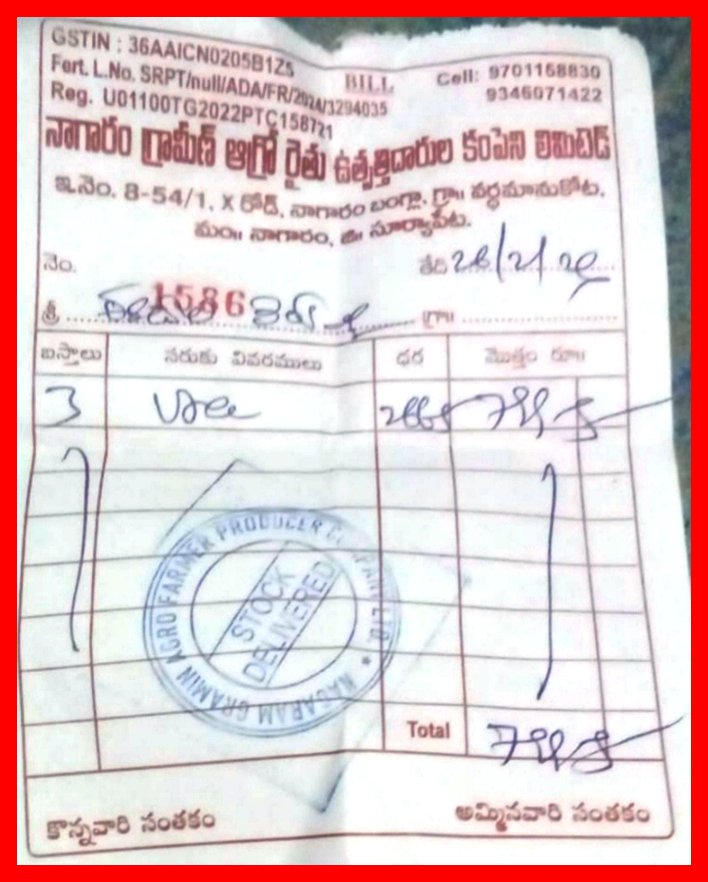 GSTIN : 36AAICN0205B1Z5
BILL
Cell: 9701158830
Fert. L.No. SRPT/null/ADA/FR/2024/3294035
9346071422
Reg. U01100TG2022PTC158721
నాగారం గ్రామీణ్ ఆగ్రో రైతు ఉత్పత్తిదారుల కంపెని లిమిటెడ్
ఇ.నెం. 8-54/1, X రోడ్, నాగారం బంగ్లా, గ్రా॥ వర్ధమానుకోట,
మం॥ నాగారం, జి॥ సూర్యాపేట.
నెం. 1586
తేది
శ్రీ
గ్రా॥
బస్తాలు సరుకు వివరములు ధర మొత్తం రూ॥
3
NAGARAM GRAMIN AGRO FARMER PRODUCER COMPANY LTD *
STOCK
DELIVERED
Total
కొన్నవారి సంతకం
అమ్మినవారి సంతకం